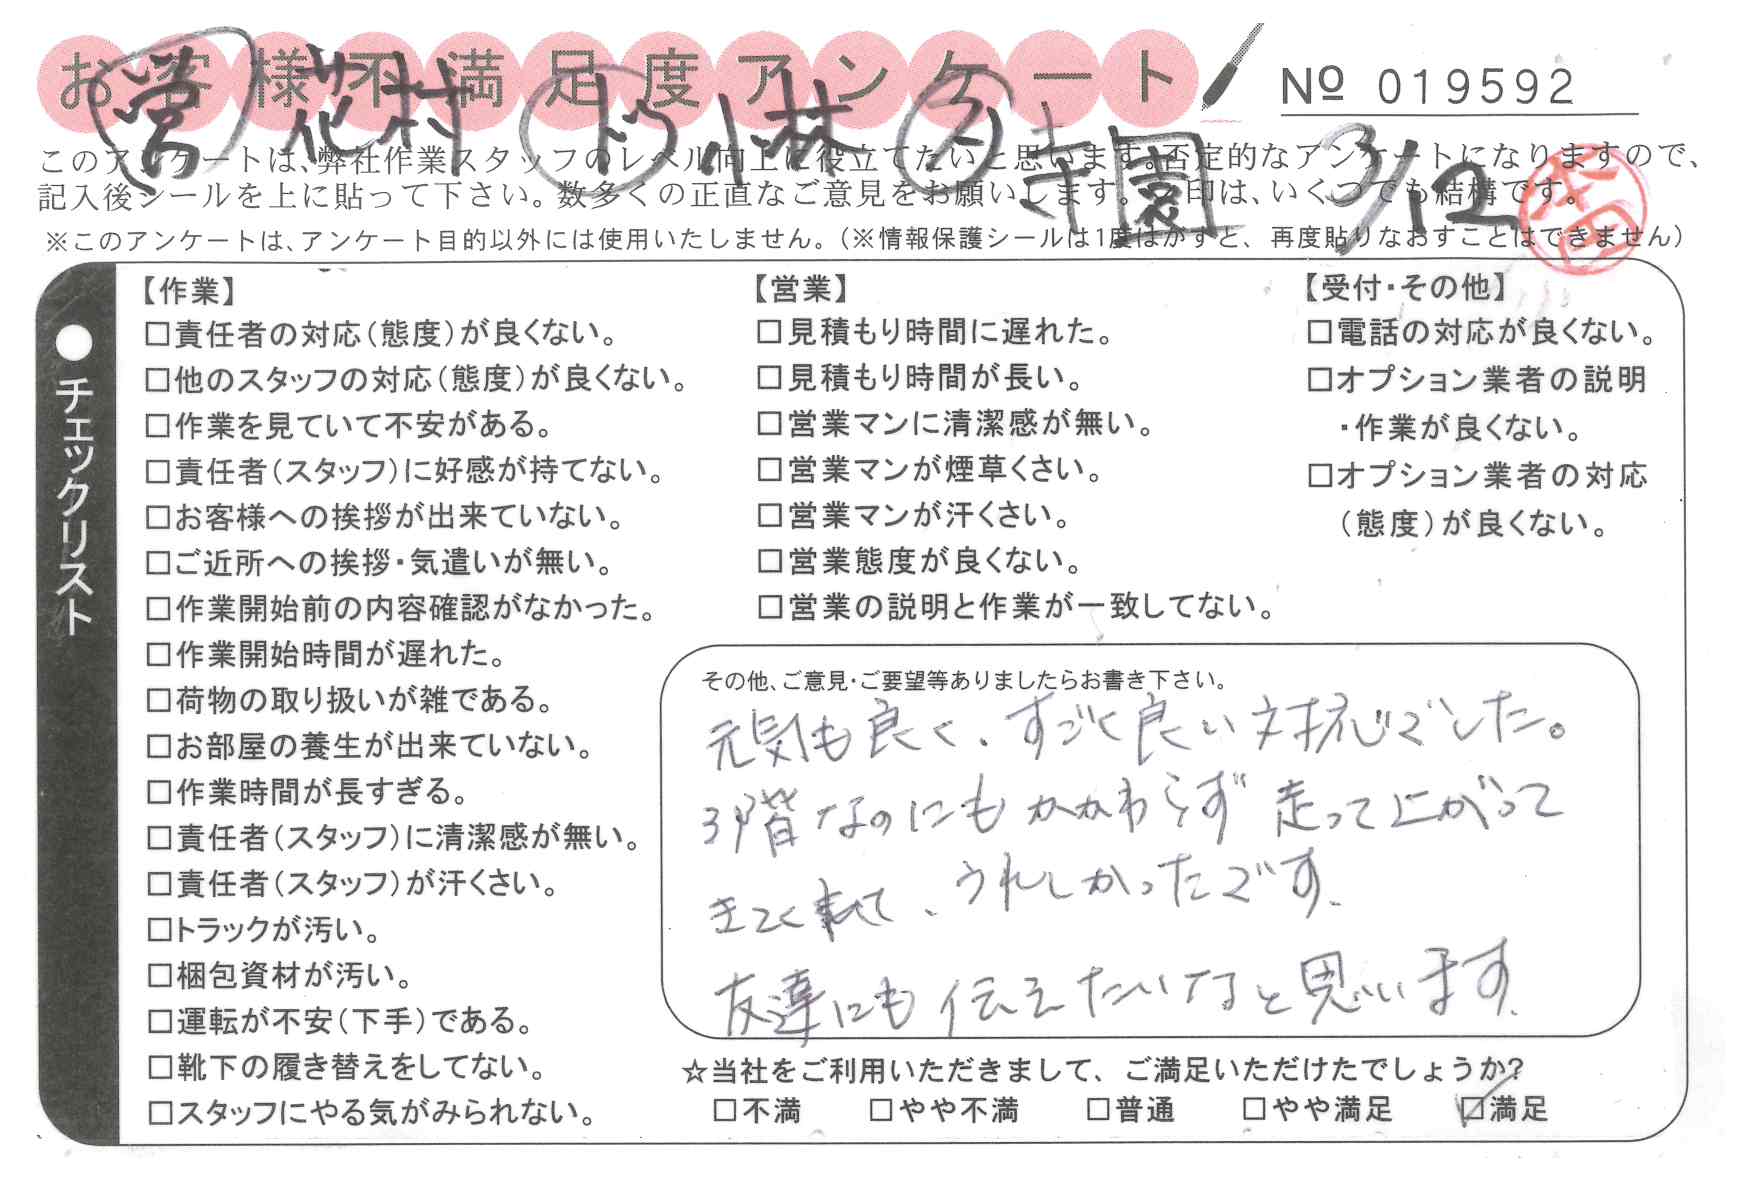 お客様不満足度アンケート
№ 019592
営 花村 ドラ 小林 ス 寺園 3/12
このアンケートは、弊社作業スタッフのレベル向上に役立てたいと思います。否定的なアンケートになりますので、
記入後シールを上に貼って下さい。数多くの正直なご意見をお願いします。✓印は、いくつでも結構です。
※このアンケートは、アンケート目的以外には使用いたしません。(※情報保護シールは1度はがすと、再度貼りなおすことはできません)
●チェックリスト
【作業】
□責任者の対応(態度)が良くない。
□他のスタッフの対応(態度)が良くない。
□作業を見ていて不安がある。
□責任者(スタッフ)に好感が持てない。
□お客様への挨拶が出来ていない。
□ご近所への挨拶・気遣いが無い。
□作業開始前の内容確認がなかった。
□作業開始時間が遅れた。
□荷物の取り扱いが雑である。
□お部屋の養生が出来ていない。
□作業時間が長すぎる。
□責任者(スタッフ)に清潔感が無い。
□責任者(スタッフ)が汗くさい。
□トラックが汚い。
□梱包資材が汚い。
□運転が不安(下手)である。
□靴下の履き替えをしてない。
□スタッフにやる気がみられない。
【営業】
□見積もり時間に遅れた。
□見積もり時間が長い。
□営業マンに清潔感が無い。
□営業マンが煙草くさい。
□営業マンが汗くさい。
□営業態度が良くない。
□営業の説明と作業が一致してない。
【受付・その他】
□電話の対応が良くない。
□オプション業者の説明
・作業が良くない。
□オプション業者の対応
(態度)が良くない。
その他、ご意見・ご要望等ありましたらお書き下さい。
元気も良く、すごく良い対応でした。
3階なのにもかかわらず走って上がって
きてくれて、うれしかったです。
友達にも伝えたいなと思います。
☆当社をご利用いただきまして、ご満足いただけたでしょうか?
□不満 □やや不満 □普通 □やや満足 ☑満足